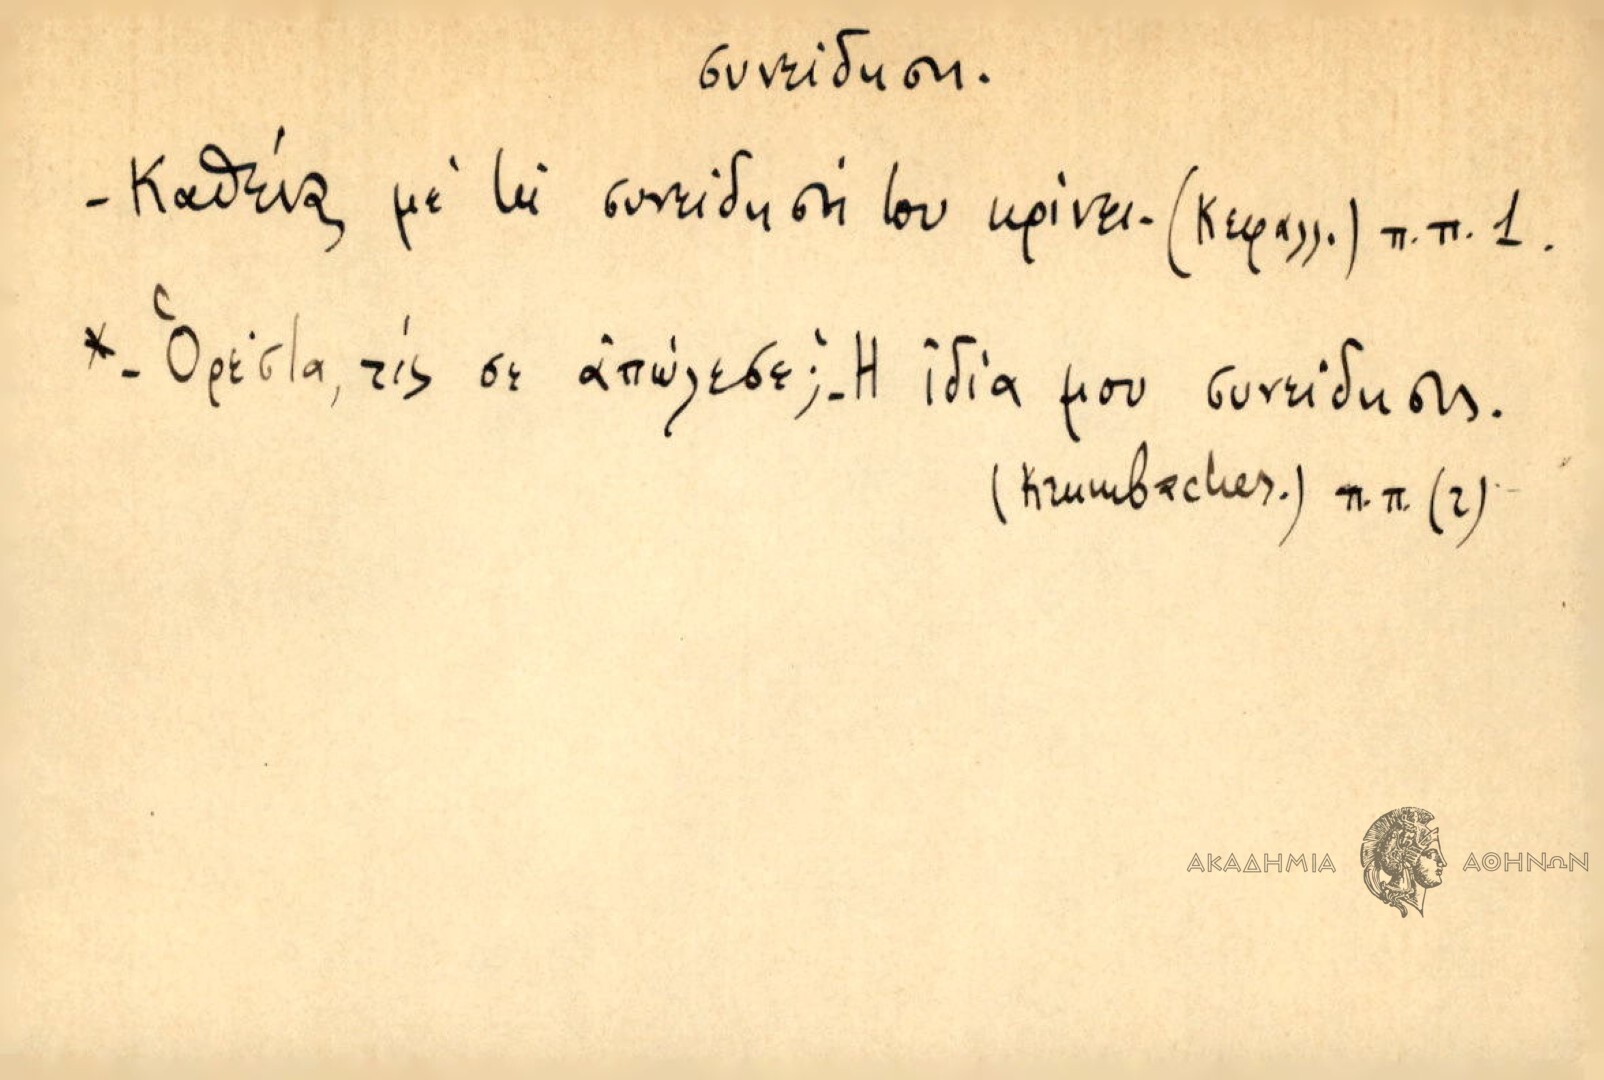 συνείδηση.
- Καθένας μέ τή συνείδησή του κρίνει - (Κεφαλλ.) π.π. 1.
*- Ὀρέστα, τίς σε ἀπώλεσε; - Η ἰδία μου συνείδησις.
(Krumbacher.) π.π. (2)
ΑΚΑΔΗΜΙΑ ΑΘΗΝΩΝ